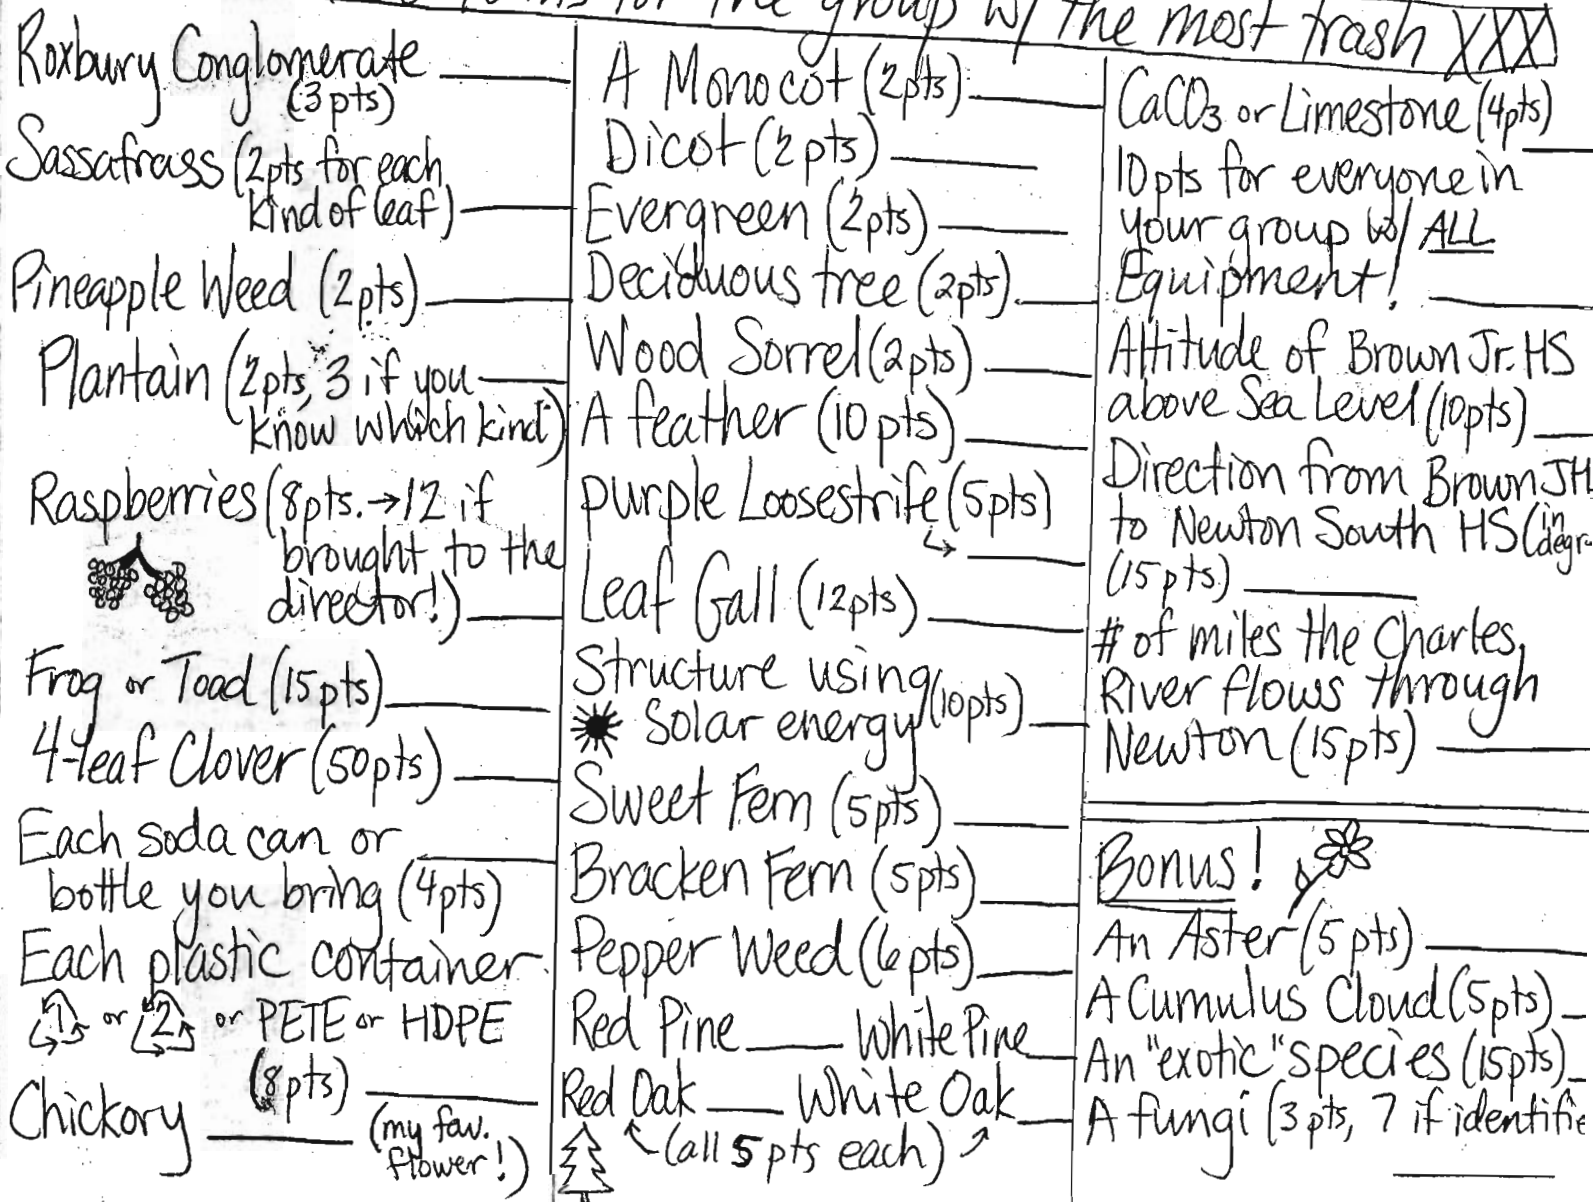 for the group w/ the most trash XXX
Roxbury Conglomerate
(3 pts)
Sassafrass (2pts for each
kind of leaf)
Pineapple Weed (2pts)
Plantain (2pts, 3 if you
know which kind)
Raspberries (8pts. → 12 if
brought to the
director!)
Frog or Toad (15pts)
4-leaf Clover (50pts)
Each soda can or
bottle you bring (4pts)
Each plastic container
1 or 2 or PETE or HDPE
(8pts)
Chickory
(my fav.
flower!)
A Monocot (2pts)
Dicot (2pts)
Evergreen (2pts)
Deciduous tree (2pts)
Wood Sorrel (2pts)
A feather (10pts)
purple Loosestrife (5pts)
Leaf Gall (12pts)
Structure using
Solar energy (10pts)
Sweet Fern (5pts)
Bracken Fern (5pts)
Pepper Weed (6pts)
Red Pine White Pine
Red Oak White Oak
(all 5 pts each)
CaCO3 or Limestone (4pts)
10pts for everyone in
your group w/ ALL
Equipment!
Altitude of Brown Jr. HS
above Sea Level (10pts)
Direction from Brown JH
to Newton South HS (in
degr
(15pts)
# of miles the Charles
River flows through
Newton (15pts)
Bonus!
An Aster (5pts)
A Cumulus Cloud (5pts)
An "exotic" species (15pts)
A fungi (3 pts, 7 if identifie